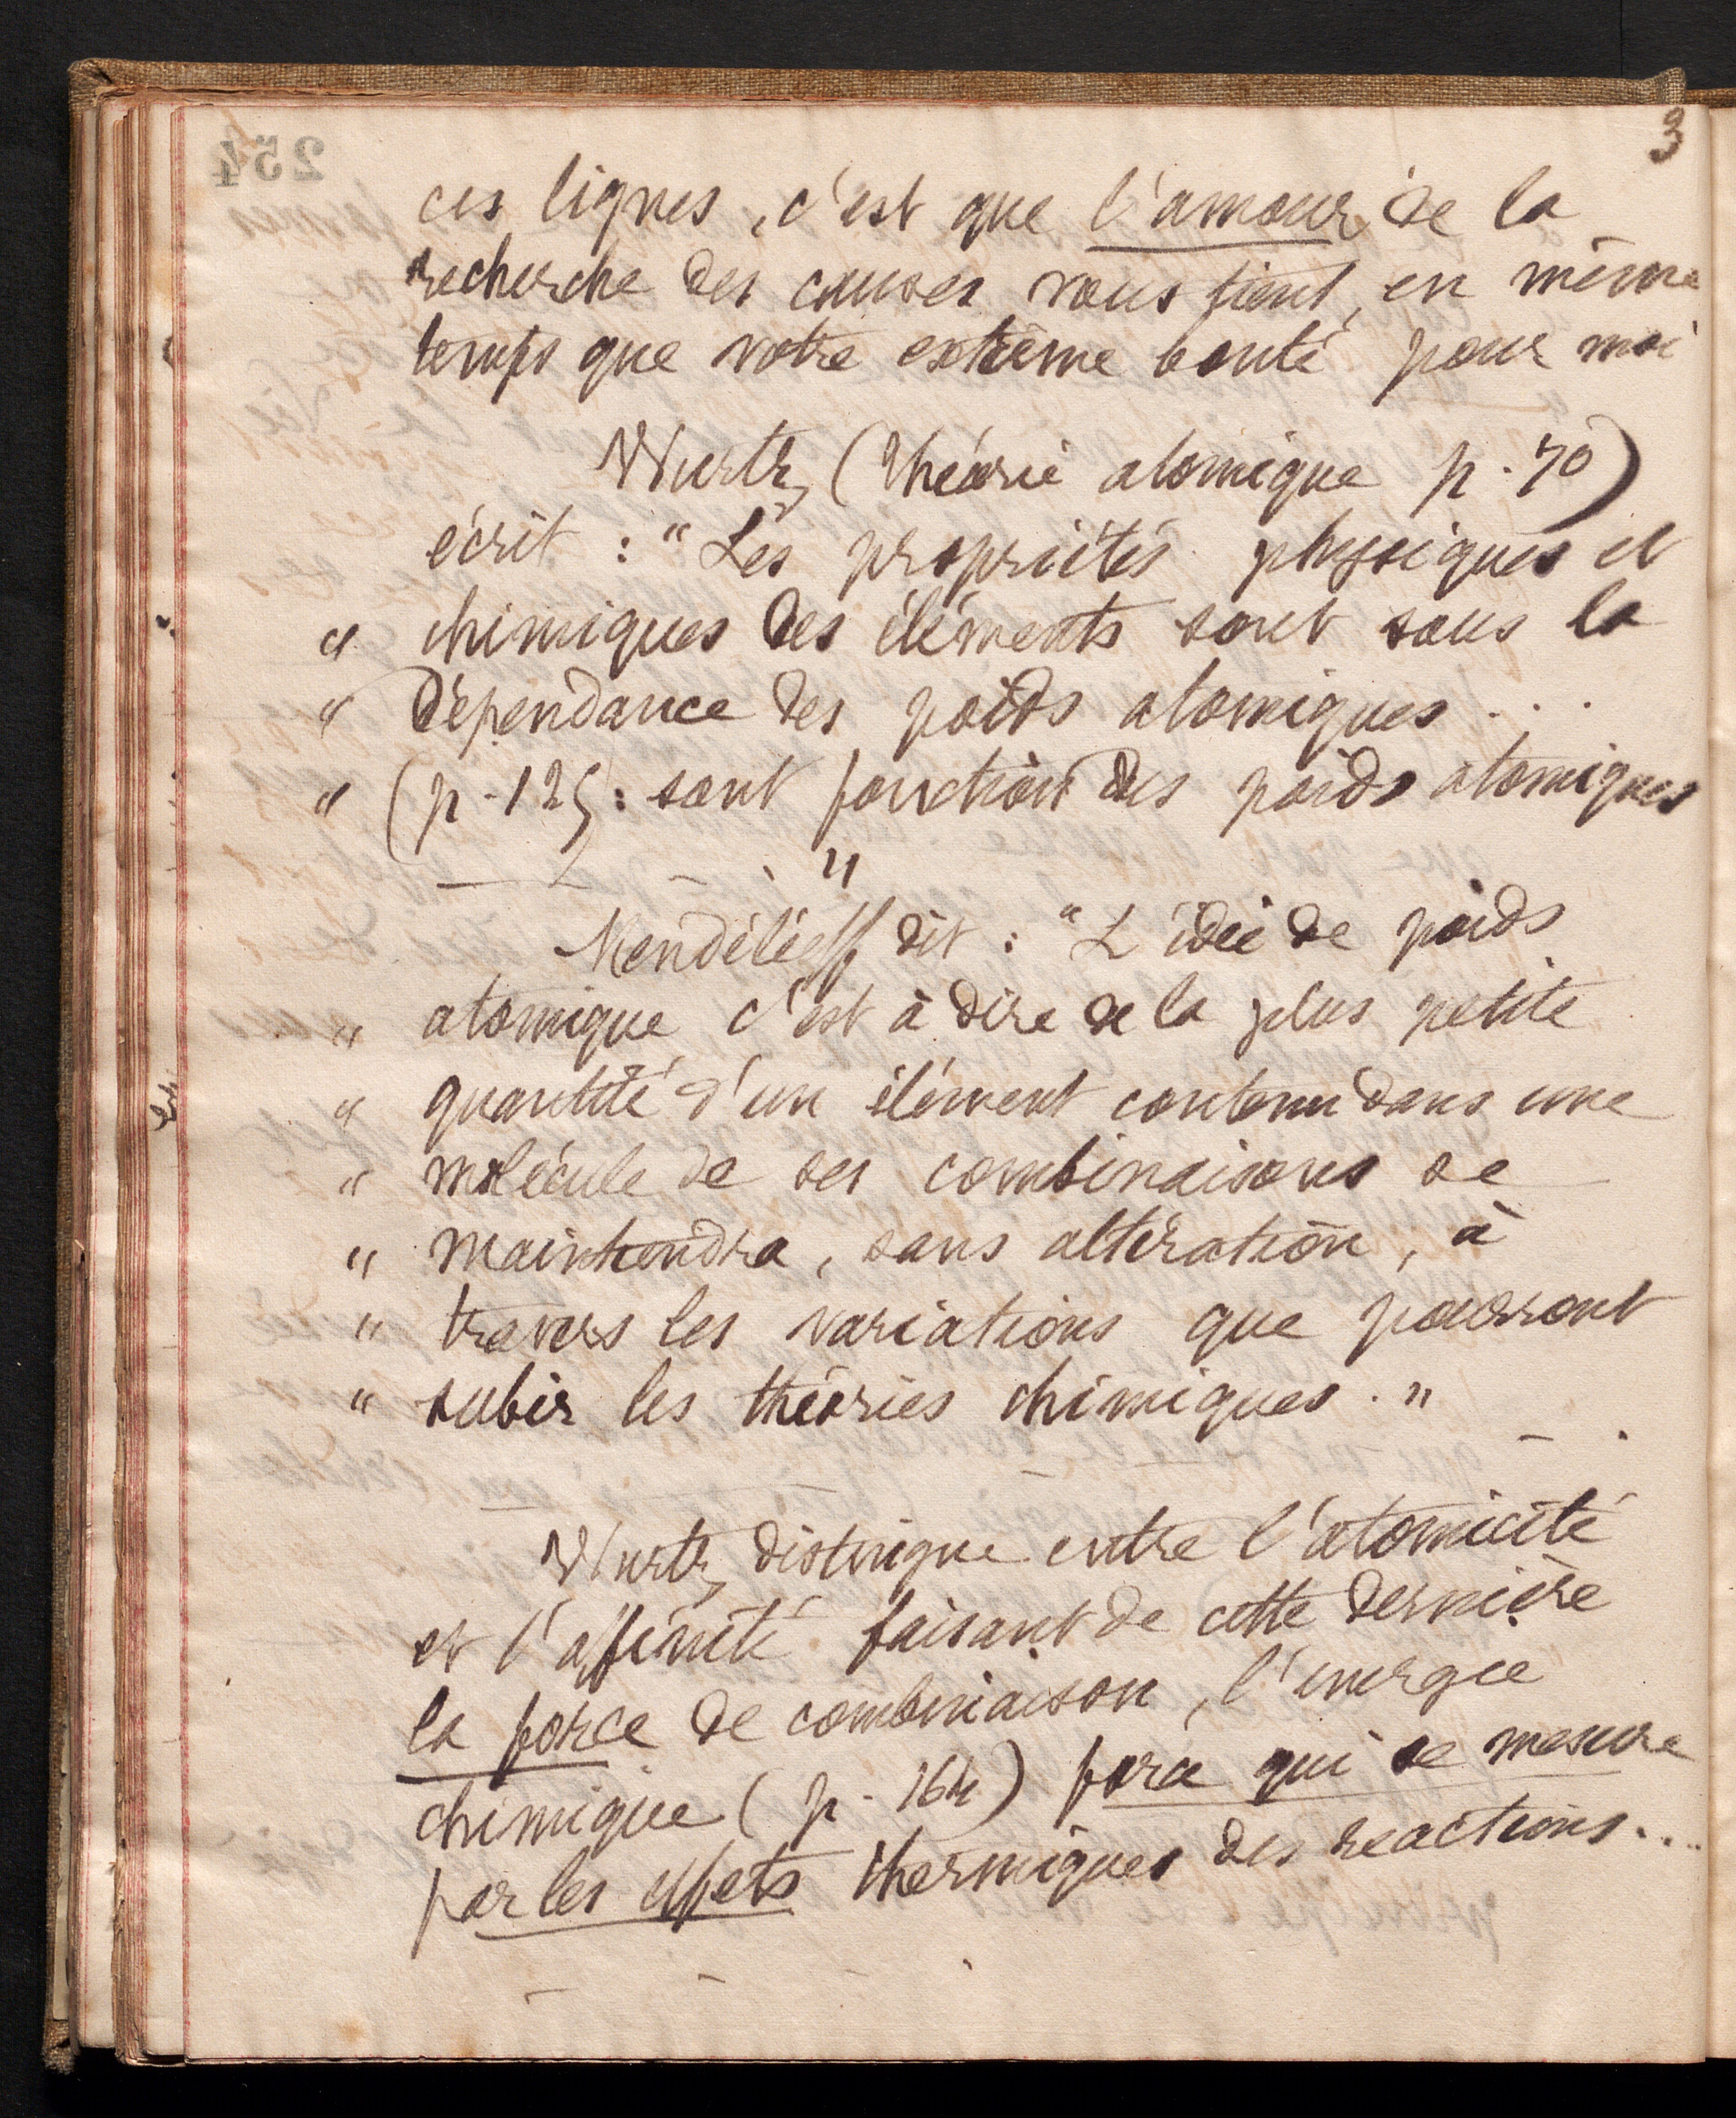 3
ces lignes, c'est que l'amour de la
recherche des causes vous tient, en même
temps que votre extrême bonté pour moi
Wurtz (théorie atomique p. 70)
écrit : "Les propriétés physiques et
" chimiques des éléments sont sous la
" dépendance des poids atomiques ...
" (p. 125 : sont fonction des poids atomiques
"
Mendéléeff dit : "L'idée de poids
" atomique c'est à dire de la plus petite
" quantité d'un élément contenu dans une
" molécule de ses combinaisons se
" maintiendra, sans altération, à
" travers les variations que pourront
" subir les théories chimiques."
Wurtz distingue entre l'atomicité
et l'affinité faisant de cette dernière
la force de combinaison, l'énergie
chimique (p. 164) force qui se mesure
par les effets thermiques des réactions...